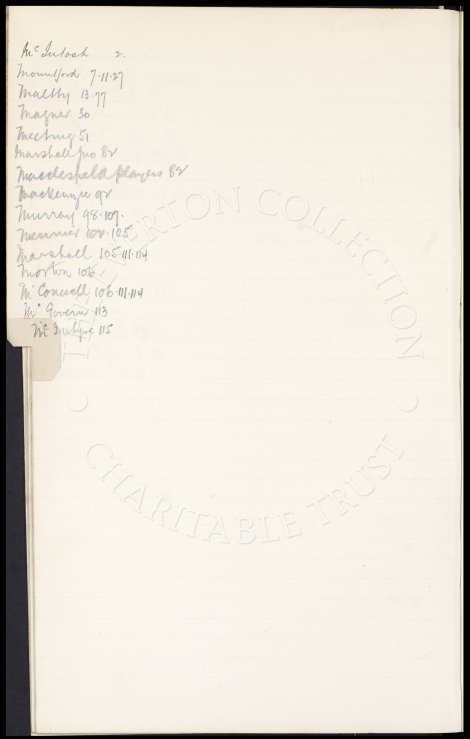 Mc Intosh 2.
Mountford 7.11.27
Maltby 13.77
Magner 30
Meeting 51
Marshall Jno 82
Macclesfield players 82
Mackenzie 92
Murray 98.107.
102.105
Marshall 105.111.114
Morton 106
Mc Connell 106.111.114
Mc Govern 113
Mc Intyre 115
THE EVERTON COLLECTION
CHARITABLE TRUST